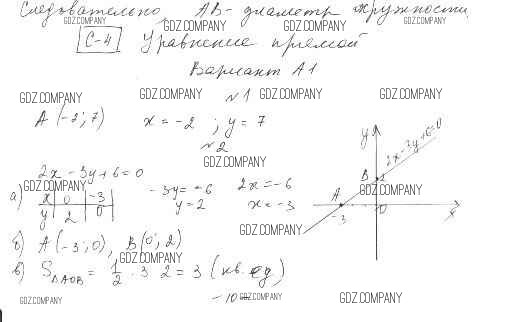 Следовательно AB - диаметр окружности
GDZ.COMPANY GDZ.COMPANY GDZ.COMPANY GDZ.COMPANY
С-4 Уравнение прямой
Вариант А1
GDZ.COMPANY GDZ.COMPANY GDZ.COMPANY GDZ.COMPANY
№1
A(-2;7) x = -2 ; y = 7
№2
GDZ.COMPANY
2x - 3y + 6 = 0
GDZ.COMPANY
а) x 0 -3
y 2 0
-3y = -6 2x = -6
y = 2 x = -3
б) A(-3;0), B(0;2)
GDZ.COMPANY
в) S△AOB = 1/2 · 3 · 2 = 3 (кв. ед)
y
2x - 3y + 6 = 0
B 2
GDZ.COMPANY
A
-3 0 x
- 10 -
GDZ.COMPANY GDZ.COMPANY GDZ.COMPANY